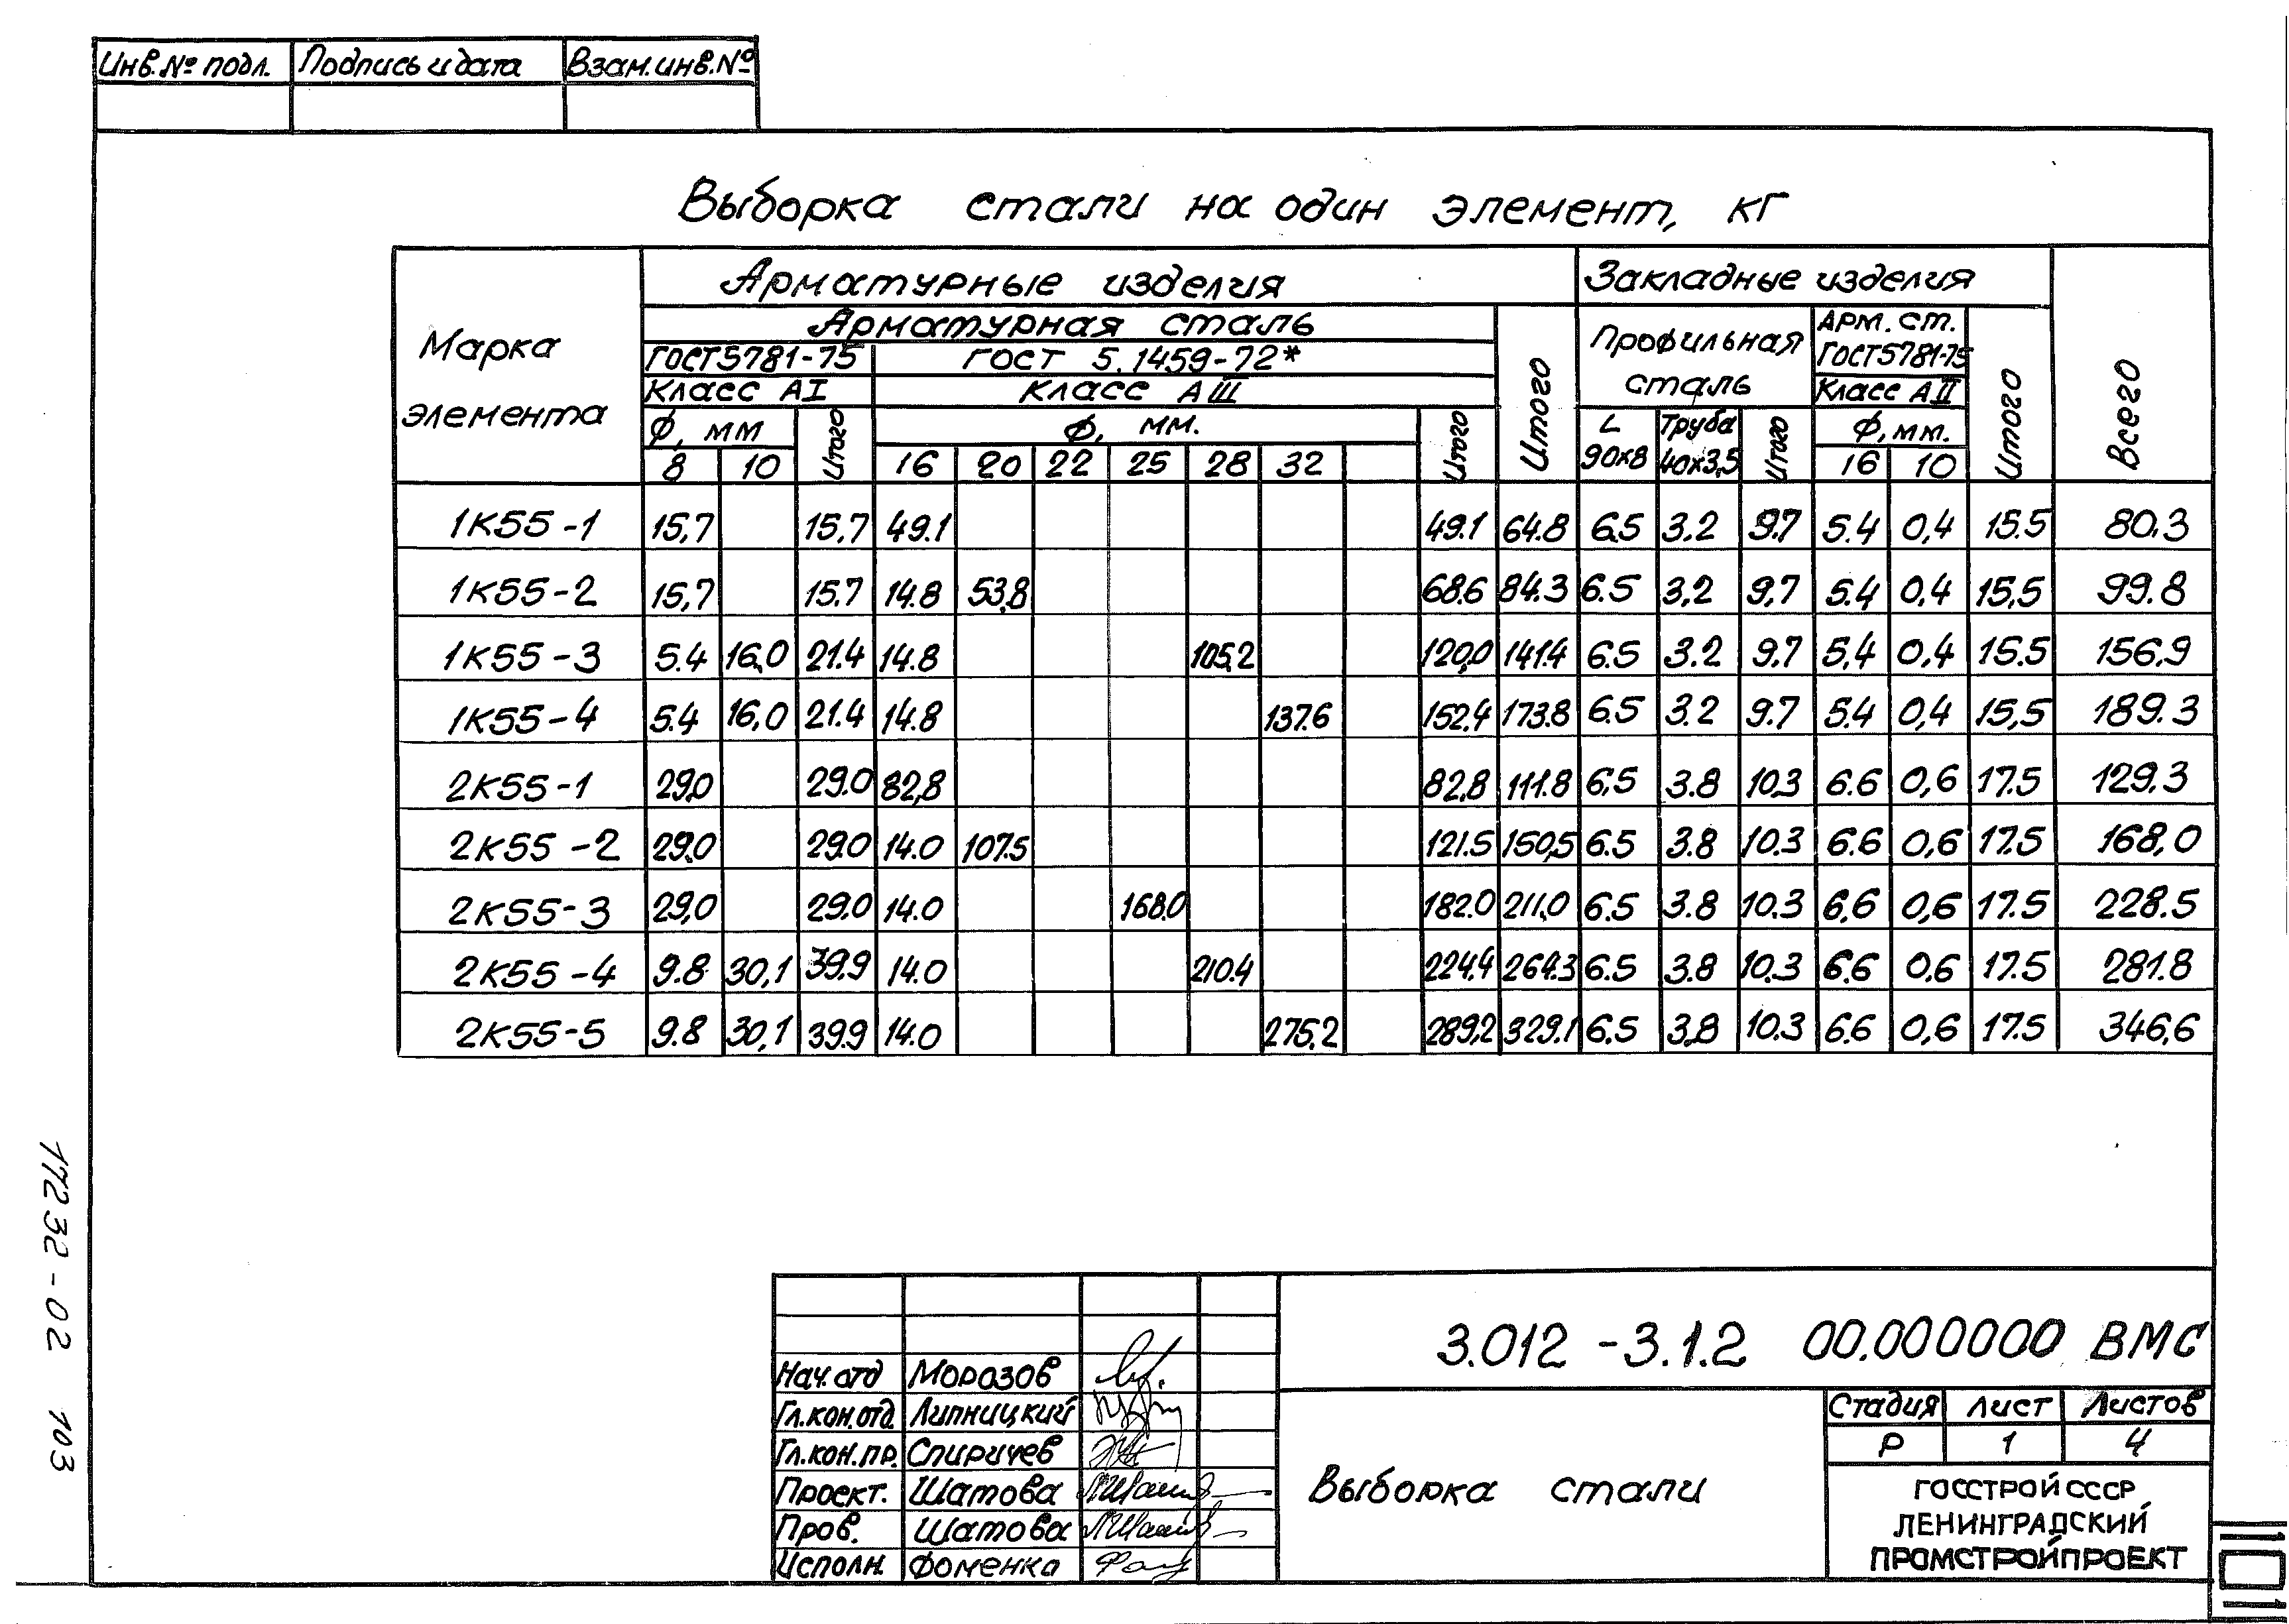 Инв.№ подл. Подпись и дата Взам.инв.№
Выборка стали на один элемент, кг
Марка элемента
Арматурные изделия
Закладные изделия
Всего
Арматурная сталь
Итого
Профильная сталь
Арм. ст.
ГОСТ5781-75
Итого
ГОСТ5781-75 ГОСТ 5.1459-72*
Класс АI Класс АIII Класс АII
Ф, мм Итого Ф, мм. Итого L 90х8 Труба 40х3,5 Итого Ф, мм.
8 10 16 20 22 25 28 32 16 10
1К55-1 15,7 15,7 49.1 49.1 64.8 6.5 3.2 9.7 5.4 0,4 15.5 80.3
1К55-2 15,7 15.7 14.8 53,8 68.6 84.3 6.5 3,2 9,7 5.4 0,4 15,5 99.8
1К55-3 5.4 16,0 21.4 14.8 105,2 120,0 141.4 6.5 3.2 9,7 5,4 0,4 15.5 156,9
1К55-4 5.4 16,0 21.4 14.8 137.6 152.4 173.8 6.5 3.2 9.7 5.4 0,4 15,5 189.3
2К55-1 29,0 29.0 82,8 82,8 111.8 6,5 3.8 10,3 6.6 0,6 17.5 129,3
2К55-2 29,0 29.0 14.0 107.5 121.5 150,5 6.5 3.8 10.3 6.6 0,6 17.5 168,0
2К55-3 29,0 29.0 14.0 168.0 182.0 211,0 6.5 3.8 10.3 6,6 0,6 17.5 228.5
2К55-4 9.8 30,1 39.9 14.0 210.4 224.4 264.3 6.5 3.8 10.3 6.6 0,6 17.5 281.8
2К55-5 9.8 30,1 39.9 14.0 275,2 289,2 329.1 6.5 3,8 10.3 6.6 0,6 17.5 346,6
17232-02 103
3.012-3.1.2 00.000000 ВМС
Нач.отд Морозов
Гл.кон.отд. Липницкий
Гл.кон.пр. Спиричев
Проект. Шатова
Пров. Шатова
Исполн. Фоменко
Выборка стали
Стадия Лист Листов
Р 1 4
ГОССТРОЙ СССР
ЛЕНИНГРАДСКИЙ
ПРОМСТРОЙПРОЕКТ
101